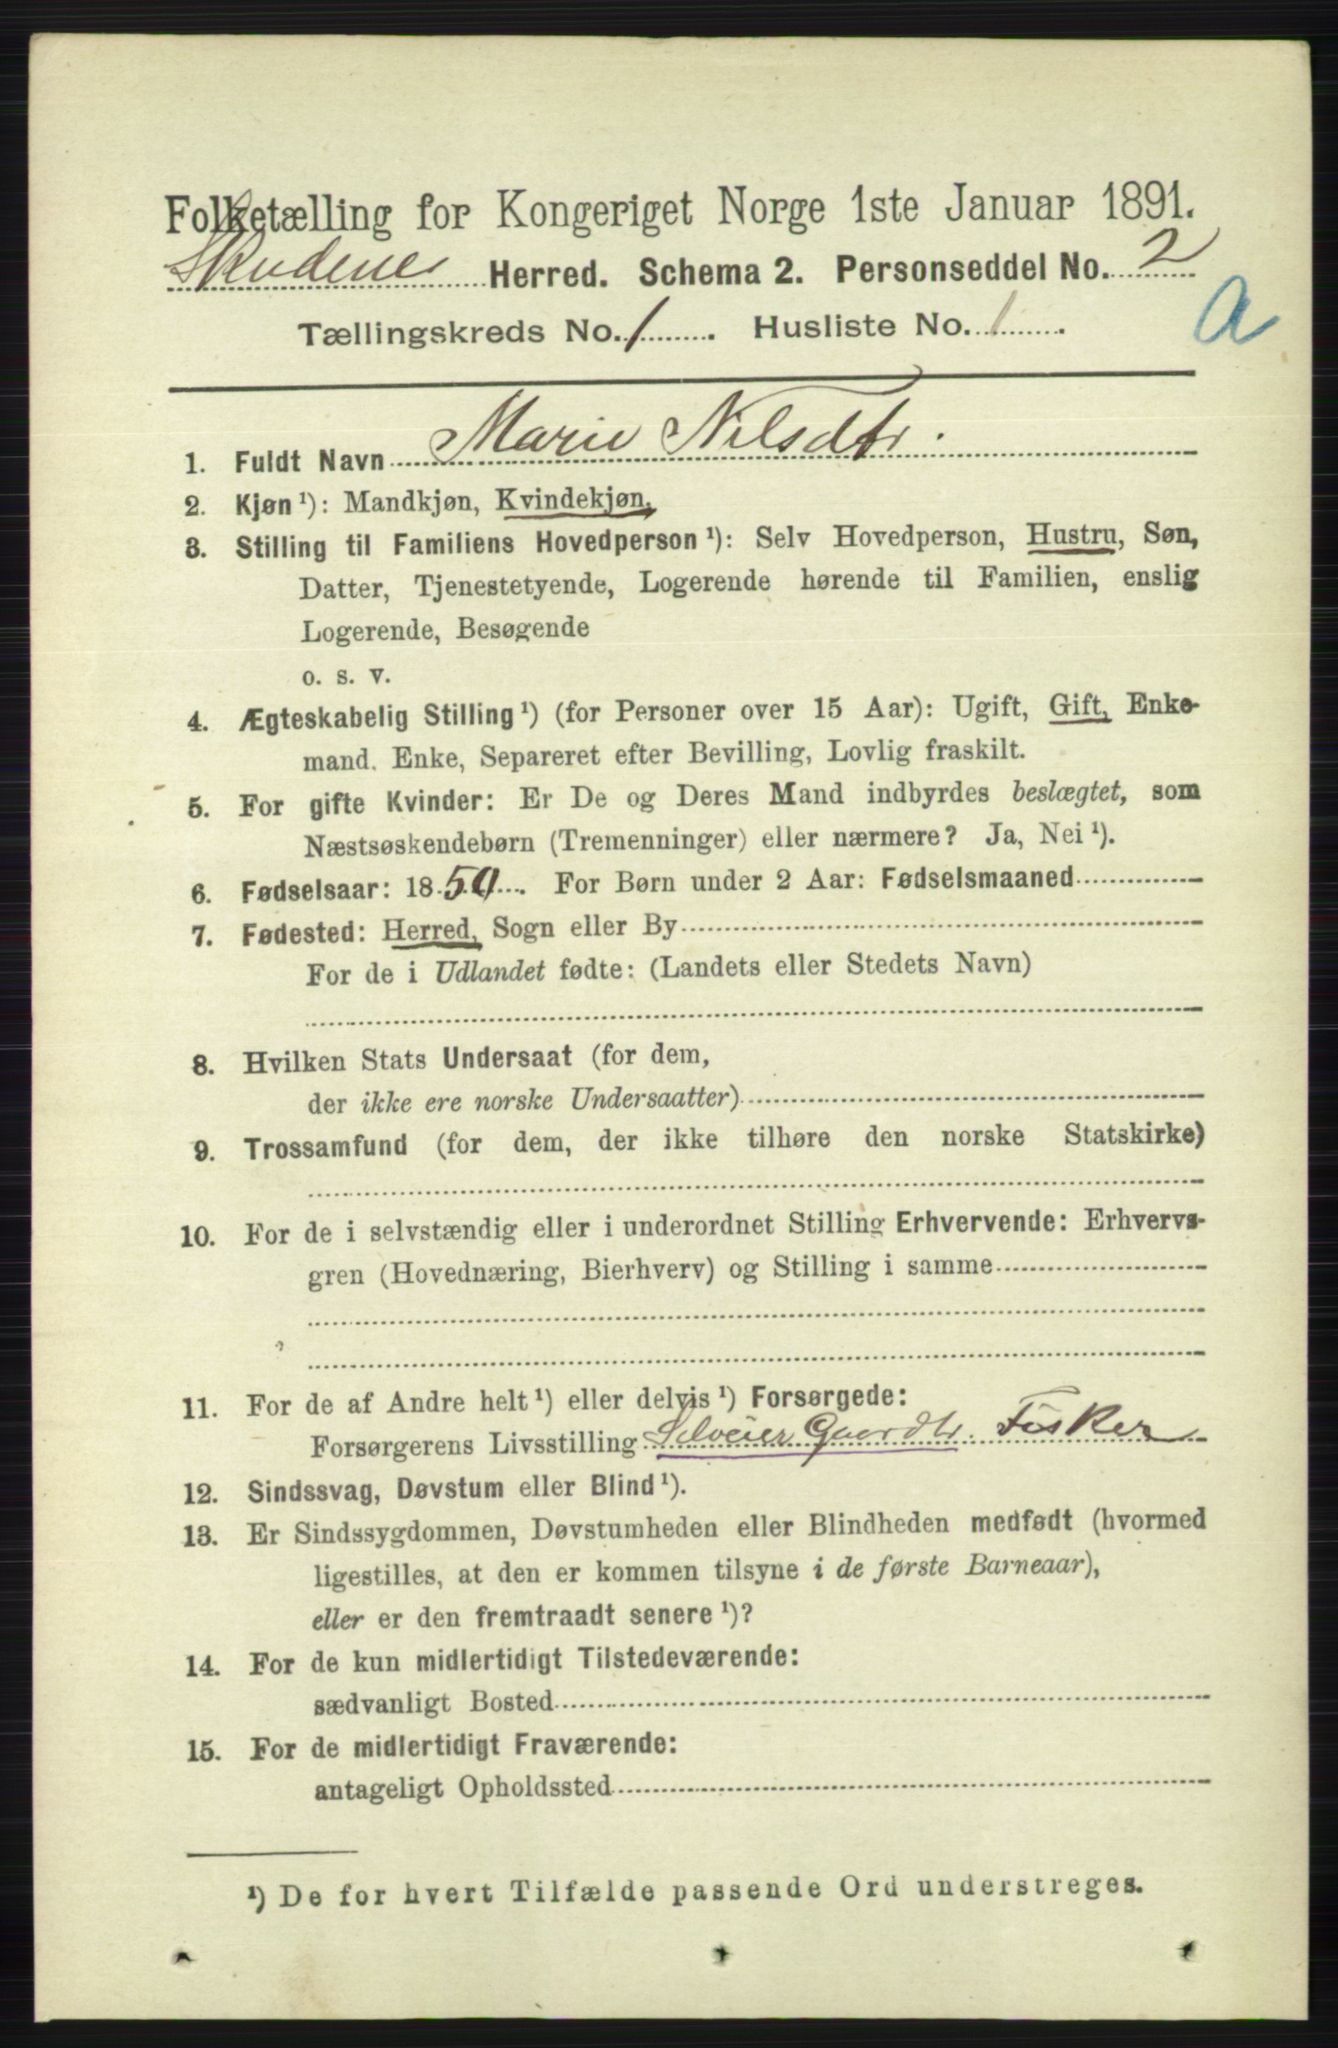 Folketælling for Kongeriget Norge 1ste Januar 1891.
Skudenes Herred. Schema 2. Personseddel No. 2
Tællingskreds No. 1. Husliste No. 1.
a
1. Fuldt Navn Marie Nilsdtr.
2. Kjøn ¹): Mandkjøn, Kvindekjøn,
3. Stilling til Familiens Hovedperson ¹): Selv Hovedperson, Hustru, Søn,
Datter, Tjenestetyende, Logerende hørende til Familien, enslig
Logerende, Besøgende
o. s. v.
4. Ægteskabelig Stilling ¹) (for Personer over 15 Aar): Ugift, Gift, Enke-
mand. Enke, Separeret efter Bevilling, Lovlig fraskilt.
5. For gifte Kvinder: Er De og Deres Mand indbyrdes beslægtet, som
Næstsøskendebørn (Tremenninger) eller nærmere? Ja, Nei ¹).
6. Fødselsaar: 1850. For Børn under 2 Aar: Fødselsmaaned
7. Fødested: Herred, Sogn eller By
For de i Udlandet fødte: (Landets eller Stedets Navn)
8. Hvilken Stats Undersaat (for dem,
der ikke ere norske Undersaatter)
9. Trossamfund (for dem, der ikke tilhøre den norske Statskirke)
10. For de i selvstændig eller i underordnet Stilling Erhvervende: Erhvervs-
gren (Hovednæring, Bierhverv) og Stilling i samme
11. For de af Andre helt ¹) eller delvis ¹) Forsørgede:
Forsørgerens Livsstilling Selveier Gaardbr. Fisker
12. Sindssvag, Døvstum eller Blind ¹).
13. Er Sindssygdommen, Døvstumheden eller Blindheden medfødt (hvormed
ligestilles, at den er kommen tilsyne i de første Barneaar),
eller er den fremtraadt senere ¹)?
14. For de kun midlertidigt Tilstedeværende:
sædvanligt Bosted
15. For de midlertidigt Fraværende:
antageligt Opholdssted
¹) De for hvert Tilfælde passende Ord understreges.